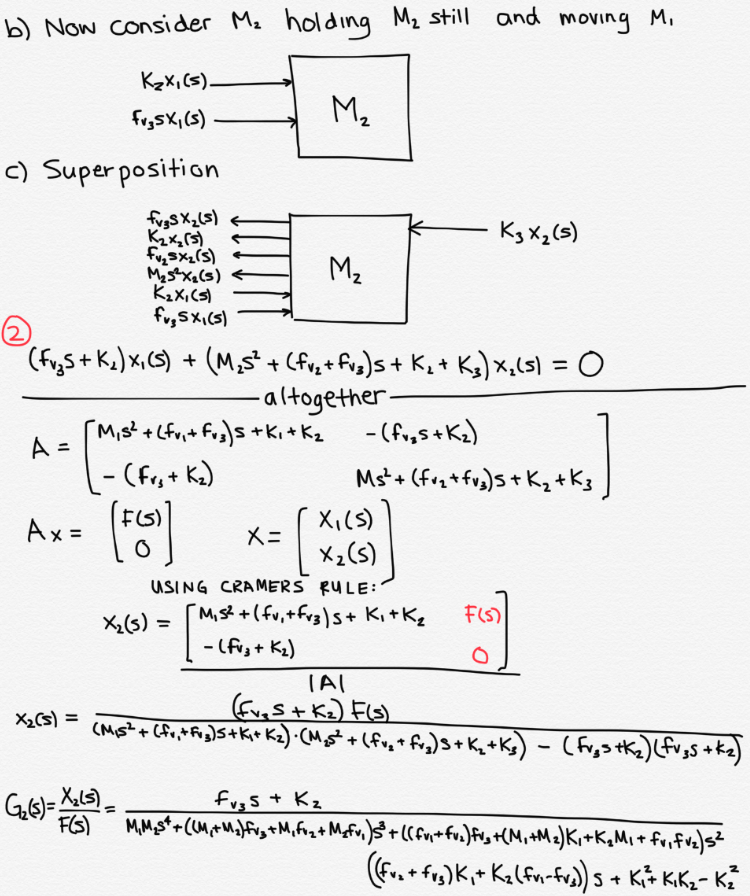 b) Now consider M₂ holding M₂ still and moving M₁
K₂x₁(s)
fv₃sx₁(s)
M₂
c) Superposition
fv₃sx₂(s)
K₂x₂(s)
fv₂sx₂(s)
M₂s²x₂(s)
K₂x₁(s)
fv₃sx₁(s)
M₂
K₃x₂(s)
②
(fv₃s+K₂)x₁(s) + (M₂s² + (fv₂+fv₃)s + K₂ + K₃)x₂(s) = 0
altogether
A = [M₁s²+(fv₁+fv₃)s+K₁+K₂ -(fv₃s+K₂)
-(fv₃+K₂) Ms²+(fv₂+fv₃)s+K₂+K₃]
Ax = [F(s) 0] X = [X₁(s) X₂(s)]
USING CRAMERS RULE:
X₂(s) = [M₁s²+(fv₁+fv₃)s+K₁+K₂ F(s)
-(fv₃+K₂) 0]
|A|
x₂(s) = (fv₃s+K₂)F(s)
(M₁s²+(fv₁+fv₃)s+K₁+K₂)·(M₂s²+(fv₂+fv₃)s+K₂+K₃) - (fv₃s+K₂)(fv₃s+K₂)
G₂(s) = X₂(s)/F(s) = fv₃s + K₂
M₁M₂s⁴+((M₁+M₂)fv₃+M₁fv₂+M₂fv₁)s³+((fv₁+fv₂)fv₃+(M₁+M₂)K₁+K₂M₁+fv₁fv₂)s²
((fv₂+fv₃)K₁+K₂(fv₁-fv₃))s + K₁²+K₁K₂-K₂²